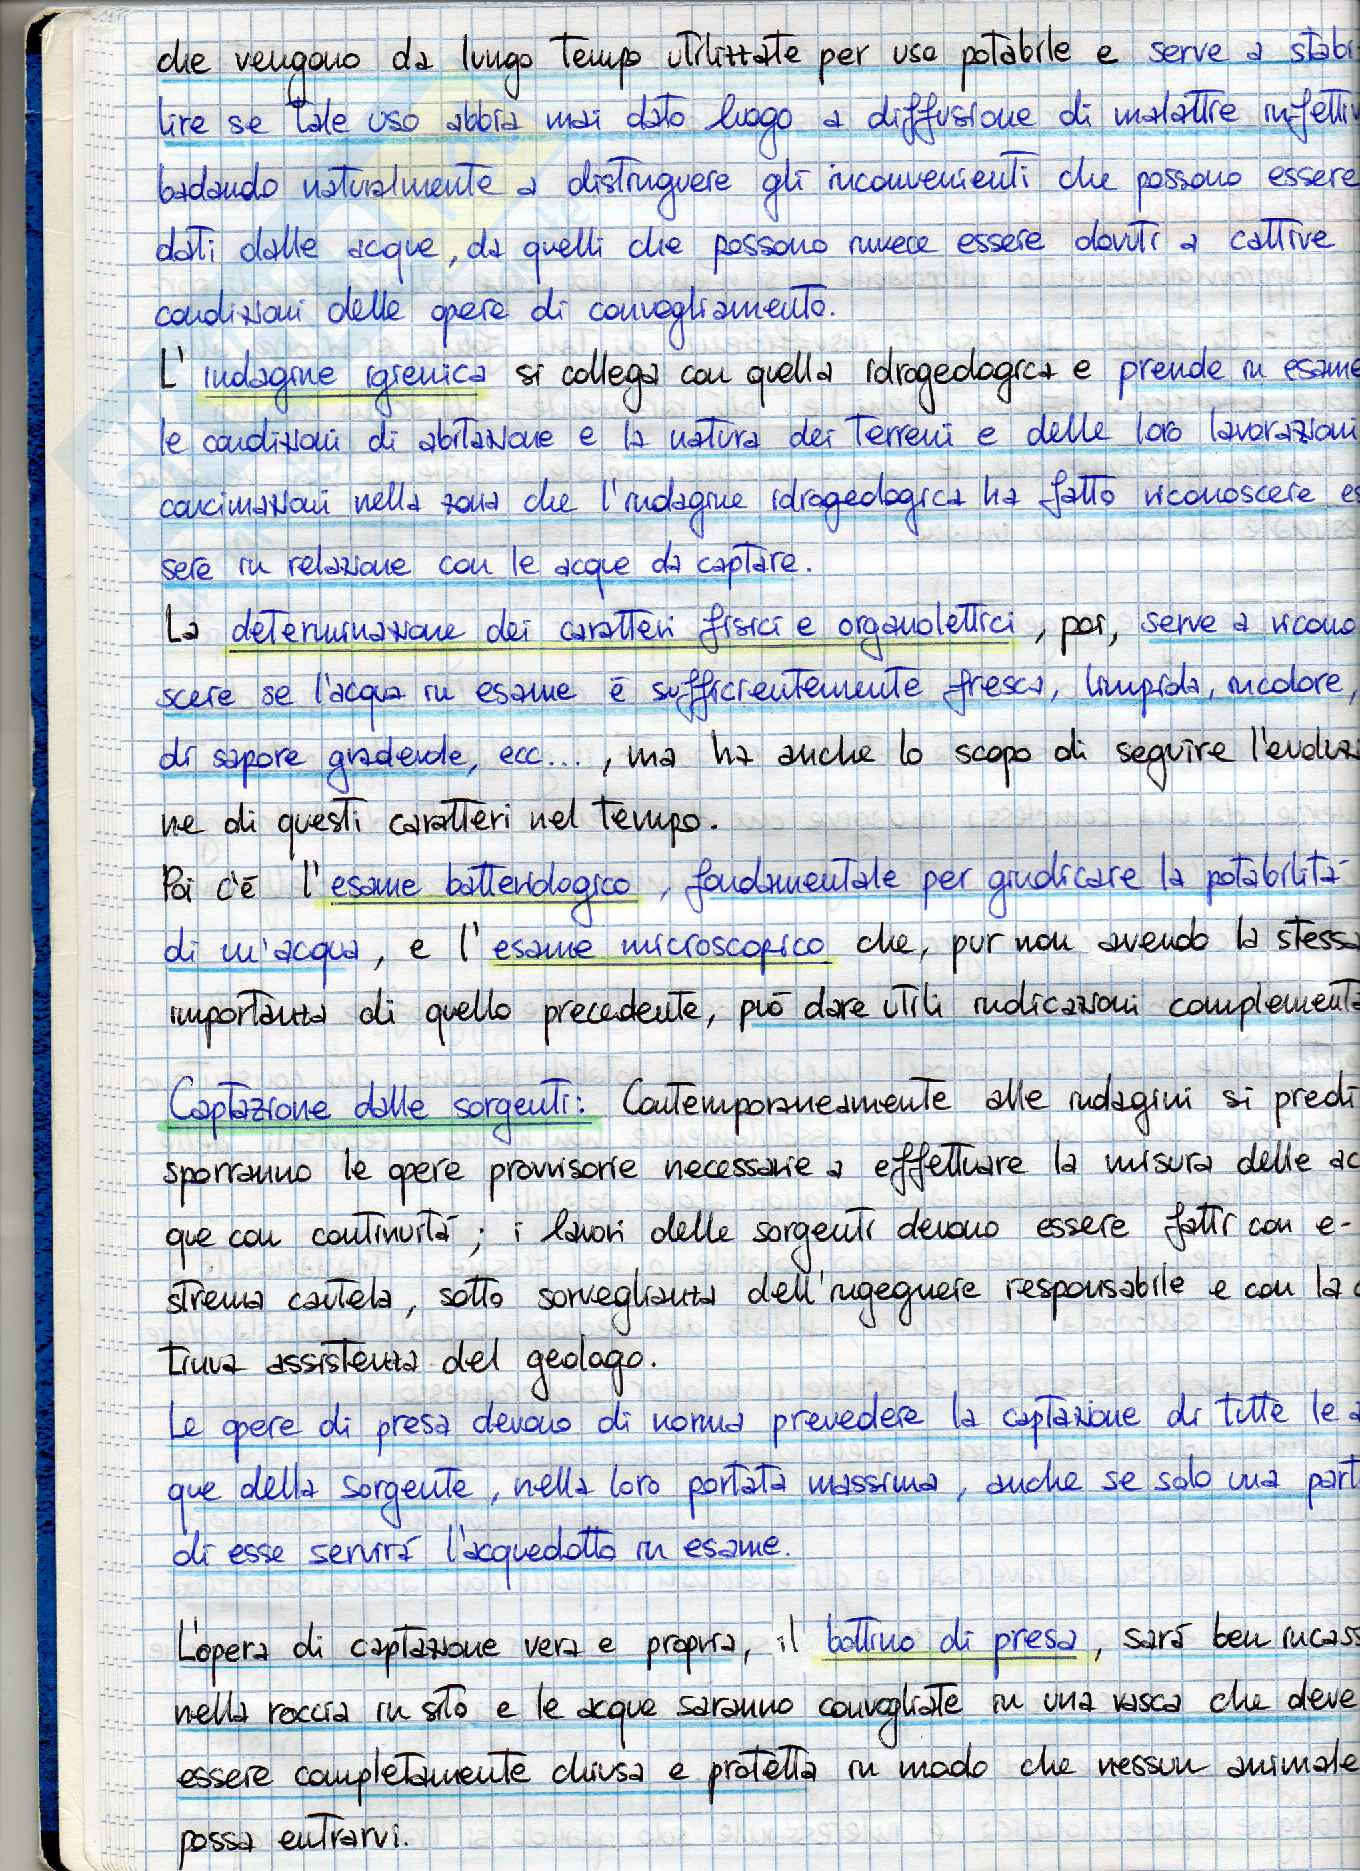 che vengono da lungo tempo utilizzate per uso potabile e serve a stabi
lire se tale uso abbia mai dato luogo a diffusione di malattie infettiv
badando naturalmente a distinguere gli inconvenienti che possono essere
dati dalle acque, da quelli che possono invece essere dovuti a cattive
condizioni delle opere di convogliamento.
L'indagine igienica si collega con quella idrogeologica e prende in esame
le condizioni di abitazione e la natura dei terreni e delle loro lavorazioni
concimazioni nella zona che l'indagine idrogeologica ha fatto riconoscere es
sere in relazione con le acque da captare.
La determinazione dei caratteri fisici e organolettici, poi, serve a ricono
scere se l'acqua in esame è sufficientemente fresca, limpida, incolore,
di sapore gradevole, ecc..., ma ha anche lo scopo di seguire l'evoluzi
ne di questi caratteri nel tempo.
Poi c'è l'esame batteriologico, fondamentale per giudicare la potabilità
di un'acqua, e l'esame microscopico che, pur non avendo la stessa
importanza di quello precedente, può dare utili indicazioni complementa
Captazione dalle sorgenti: Contemporaneamente alle indagini si predi
sporranno le opere provvisorie necessarie a effettuare la misura delle ac
que con continuità; i lavori delle sorgenti devono essere fatti con e-
strema cautela, sotto sorveglianza dell'ingegnere responsabile e con la c
tinua assistenza del geologo.
Le opere di presa devono di norma prevedere la captazione di tutte le a
que della sorgente, nella loro portata massima, anche se solo una part
di esse servirà l'acquedotto in esame.
L'opera di captazione vera e propria, il bottino di presa, sarà ben incass
nella roccia in sito e le acque saranno convogliate in una vasca che deve
essere completamente chiusa e protetta in modo che nessun animale
possa entrarvi.